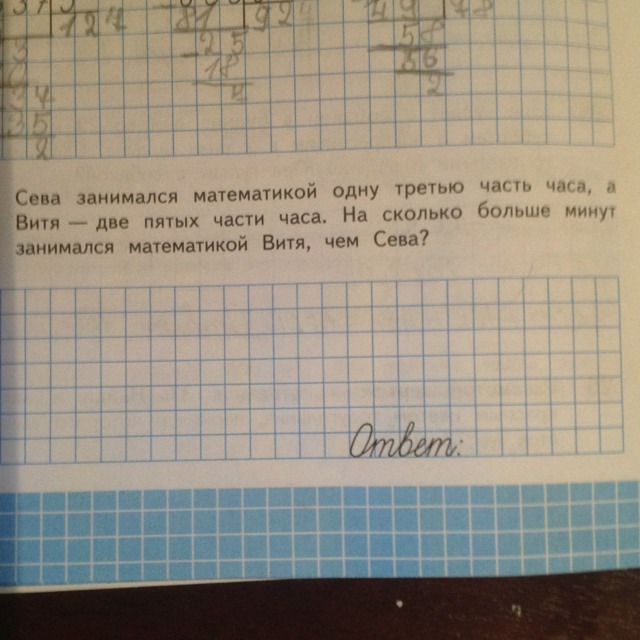 124 81 924 49 48
25 58
18 56
34 2
35
2
Сева занимался математикой одну третью часть часа, а
Витя — две пятых части часа. На сколько больше минут
занимался математикой Витя, чем Сева?
Ответ: